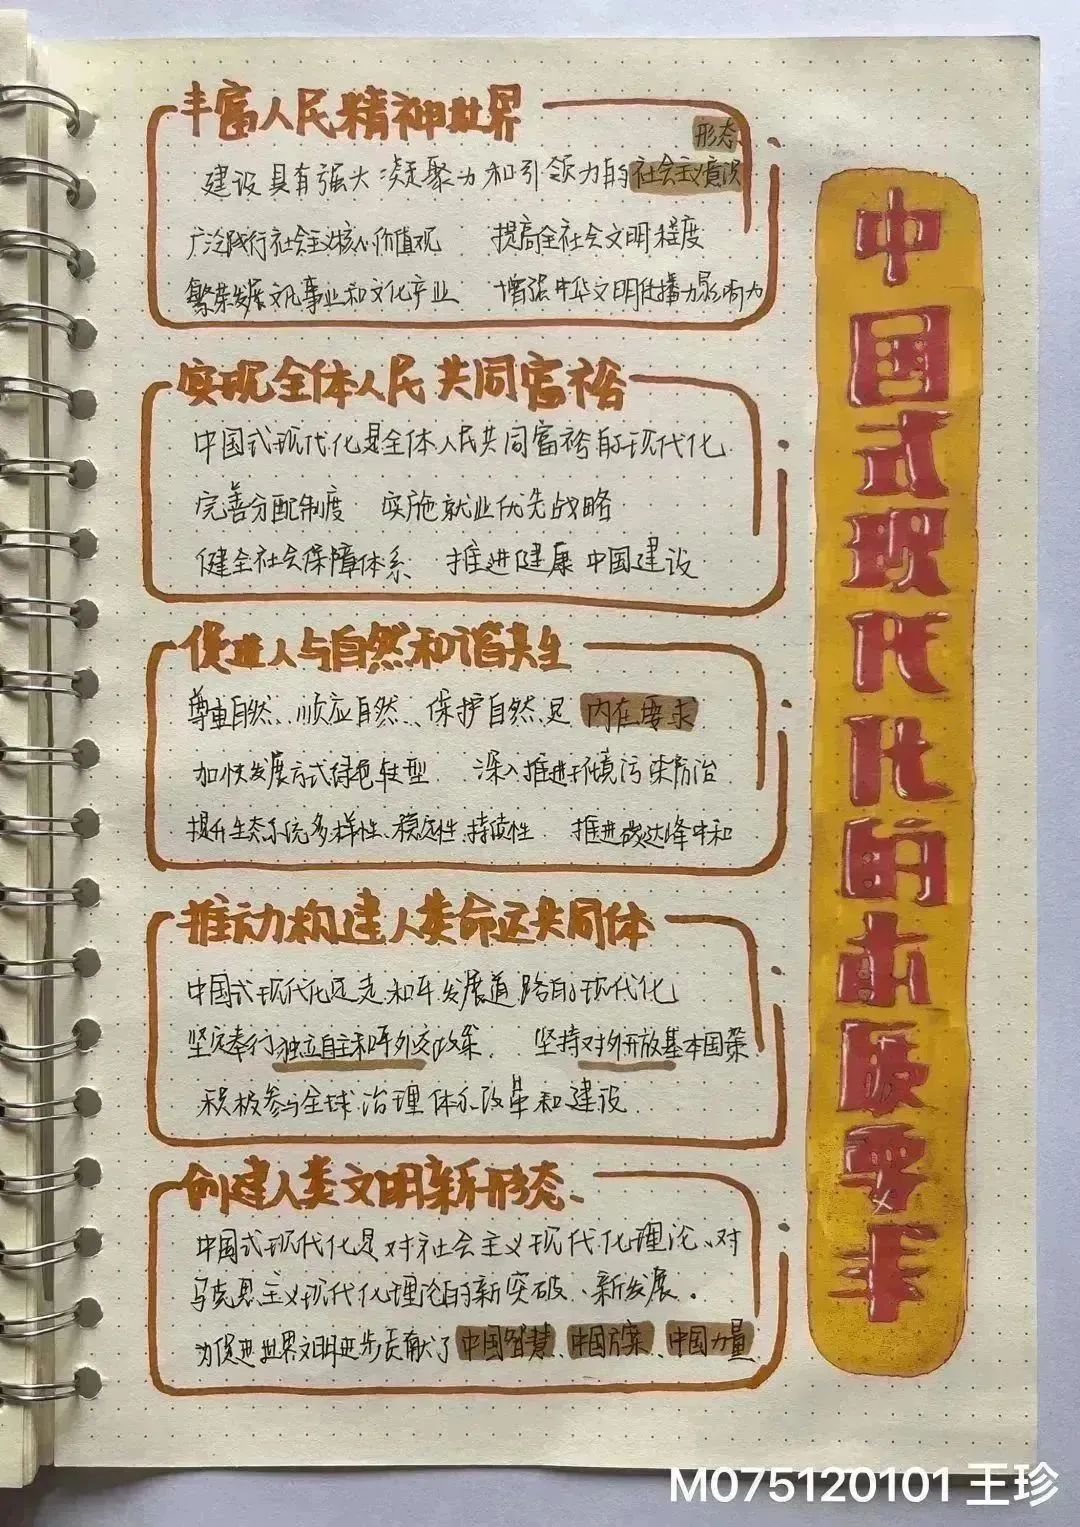 中国式现代化的本质要求
丰富人民精神世界
建设具有强大凝聚力和引领力的社会主义意识
形态
广泛践行社会主义核心价值观 提高全社会文明程度
繁荣发展文化事业和文化产业 增强中华文明传播力影响力
实现全体人民共同富裕
中国式现代化是全体人民共同富裕的现代化
完善分配制度 实施就业优先战略
健全社会保障体系 推进健康中国建设
促进人与自然和谐共生
尊重自然、顺应自然、保护自然是 内在要求
加快发展方式绿色转型 深入推进环境污染防治
提升生态系统多样性、稳定性、持续性 推进碳达峰中和
推动构建人类命运共同体
中国式现代化是走和平发展道路的现代化
坚定奉行独立自主和平外交政策. 坚持对外开放基本国策
积极参与全球治理体系改革和建设
创建人类文明新形态、
中国式现代化是对社会主义现代化理论、对
马克思主义现代化理论的新突破、新发展。
为促进世界文明进步贡献了中国智慧、中国方案、中国力量
M075120101 王珍